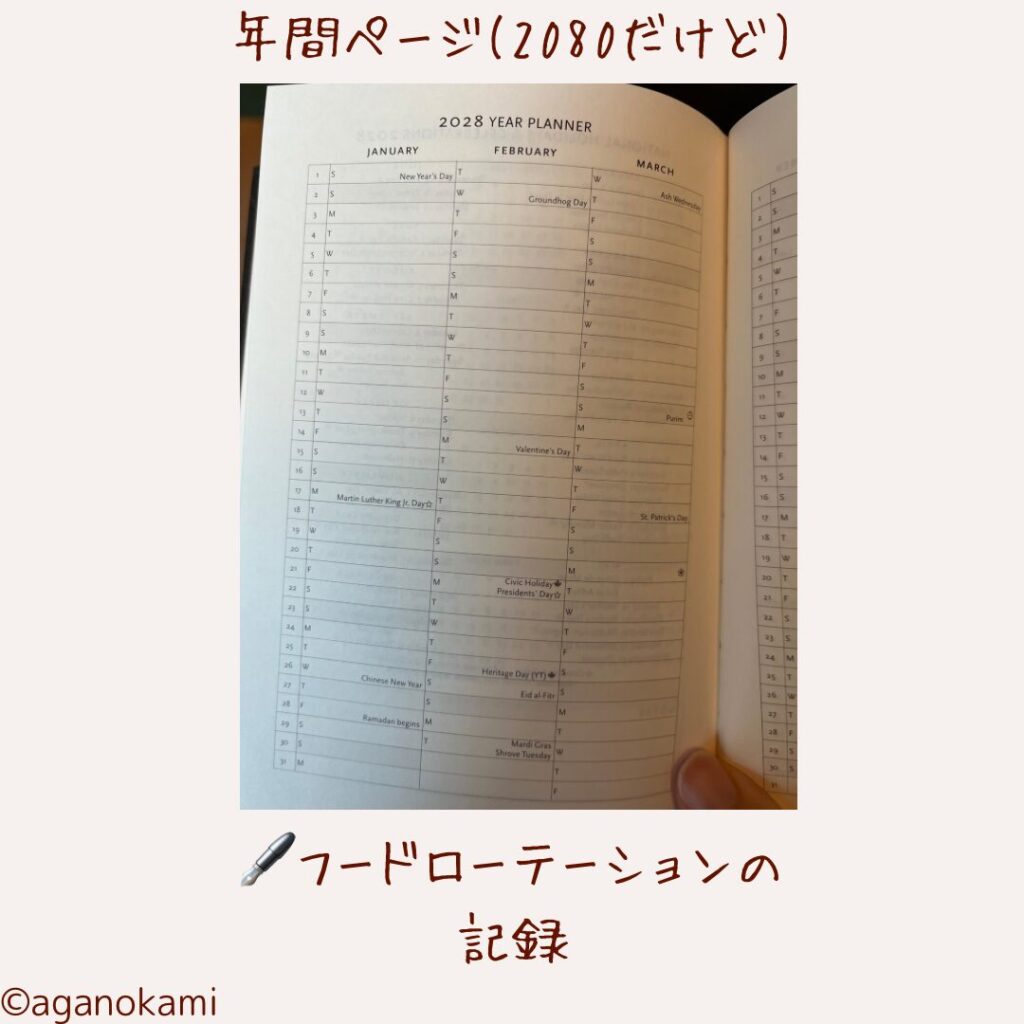 年間ページ(2080だけど)
2028 YEAR PLANNER
JANUARY FEBRUARY MARCH
1 S New Year's Day T W Ash Wednesday
2 S W Groundhog Day T
3 M T F
4 T F S
5 W S S
6 T S M
7 F M T
8 S T W
9 S W T
10 M T F
11 T F S
12 W S S Purim
13 T S M
14 F M Valentine's Day T
15 S T W
16 S W T
17 M Martin Luther King Jr. Day☆ T F St. Patrick's Day
18 T F S
19 W S S
20 T S M
21 F M Civic Holiday
Presidents' Day☆ T
22 S T W
23 S W T
24 M T F
25 T F Heritage Day (YT) S
26 W Chinese New Year S Eid al-Fitr S
27 T S M
28 F Ramadan begins M T
29 S T Mardi Gras
Shrove Tuesday W
30 S T
31 M F
1 S
2 S
3 M
4 T
5 W
6 T
7 F
8 S
9 S
10 M
11 T
12 W
13 T
14 F
15 S
16 S
17 M
18 T
19 W
20 T
21 F
22 S
23 S
24 M
25 T
26 W
27 T
28 F
29 S
30 S
31
フードローテーションの
記録
©aganokami